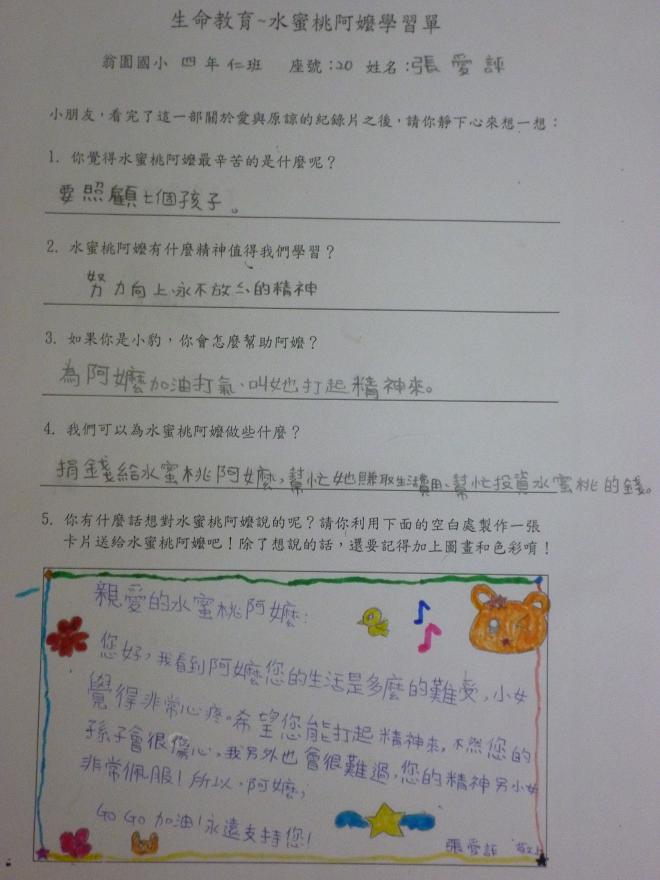 生命教育~水蜜桃阿嬤學習單
翁園國小 四 年 仁班 座號:20 姓名:張愛評
小朋友,看完了這一部關於愛與原諒的紀錄片之後,請你靜下心來想一想:
1. 你覺得水蜜桃阿嬤最辛苦的是什麼呢?
要照顧七個孩子。
2. 水蜜桃阿嬤有什麼精神值得我們學習?
努力向上、永不放的精神
3. 如果你是小豹,你會怎麼幫助阿嬤?
為阿嬤加油打氣、叫她打起精神來。
4. 我們可以為水蜜桃阿嬤做些什麼?
捐錢給水蜜桃阿嬤,幫忙她賺取生活費用、幫忙投資水蜜桃的錢。
5. 你有什麼話想對水蜜桃阿嬤說的呢?請你利用下面的空白處製作一張
卡片送給水蜜桃阿嬤吧!除了想說的話,還要記得加上圖畫和色彩唷!
親愛的水蜜桃阿嬤:
您好,我看到阿嬤您的生活是多麼的難受,小女
覺得非常心疼。希望您能打起精神來,不然您的
孫子會很傷心,我另外也會很難過,您的精神另小女
非常佩服!所以,阿嬤,
GO GO 加油!永遠支持您!
張愛評 敬上